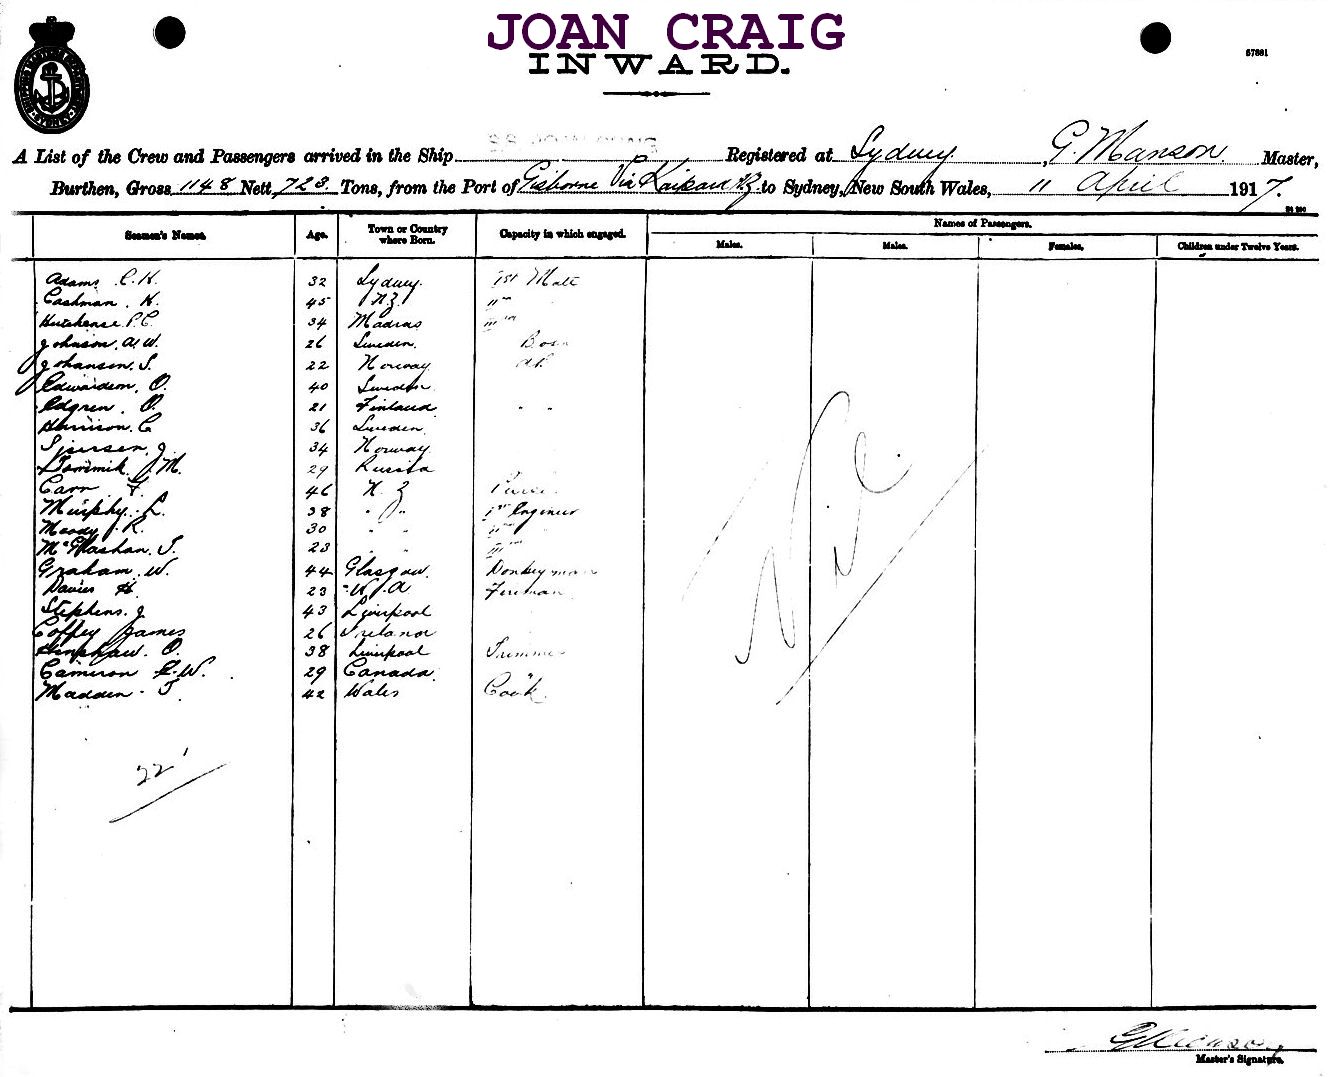 JOAN CRAIG
INWARD.
57881
A List of the Crew and Passengers arrived in the Ship Registered at Sydney, G. Manson Master,
Burthen, Gross 1148 Nett 723 Tons, from the Port of Gisborne Via N.Z. to Sydney, New South Wales, 11 April 1917.
Seamen's Names. Age. Town or Country where Born. Capacity in which engaged. Names of Passengers.
Males. Males. Females. Children under Twelve Years.
Adams C. H. 32 Sydney 1st Mate
Cashman H. 45 N.Z. II
P. C. 34 Madras III
Johnson, A. W. 26 Sweden Bosn
Johansen, S. 22 Norway AB
Edwardson, O. 40 Sweden
Edgren, O. 21 Finland " "
Harrison, C 36 Sweden
J 34 Norway
J. M. 29 Russia
Carr F. 46 N. Z
Murphy, L. 38 " " 1st Engineer
Moody R. 30 " " II "
McGlashan, S. 23 " " III "
Graham, W. 44 Glasgow Donkeyman
Davies H. 23 W. A Fireman
Stephens, J 43 Liverpool
Coffey James 26 Ireland
O. 38 Liverpool Trimmer
Cameron C. W. 29 Canada "
Madden T 42 Wales Cook
Nil
22
G Manson
Master's Signature.